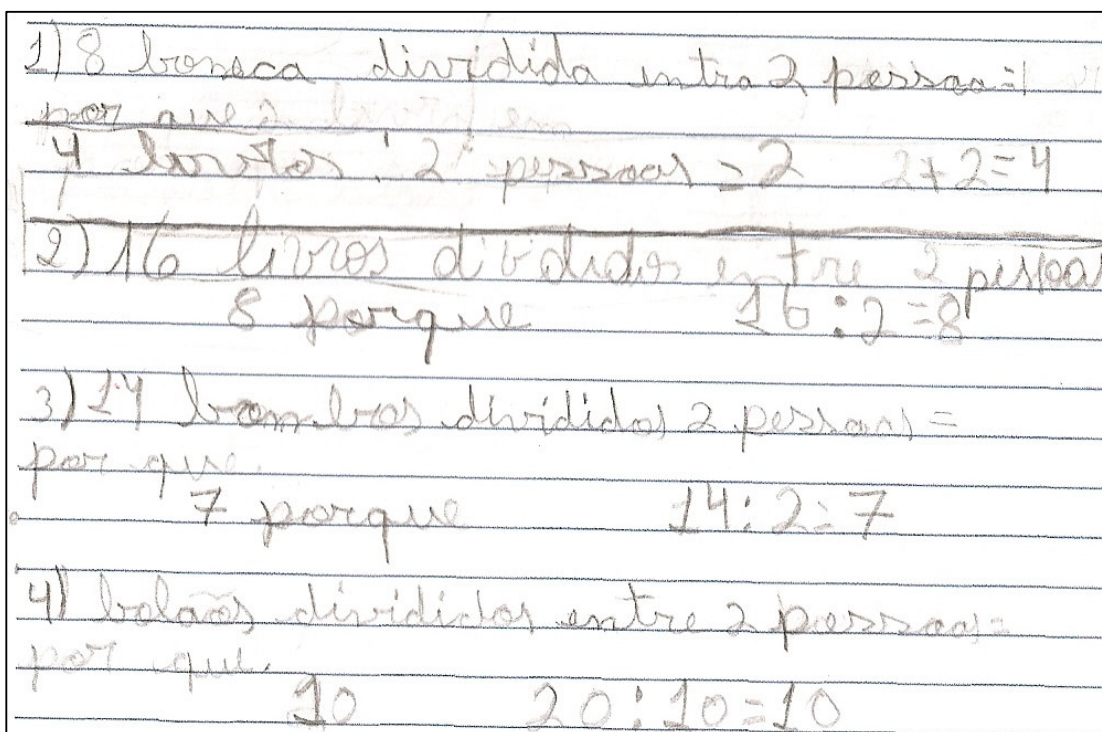 1) 8 boneca dividida entra 2 pessoa=
por que 2
4 : 2 pessoas = 2 2+2=4
2) 16 livros dividos entre 2 pessoas
8 porque 16:2=8
3) 14 bombos divididos 2 pessoas =
por que.
7 porque 14:2=7
4) bolaõs divididos entre 2 pessoas=
por que.
10 20:10=10